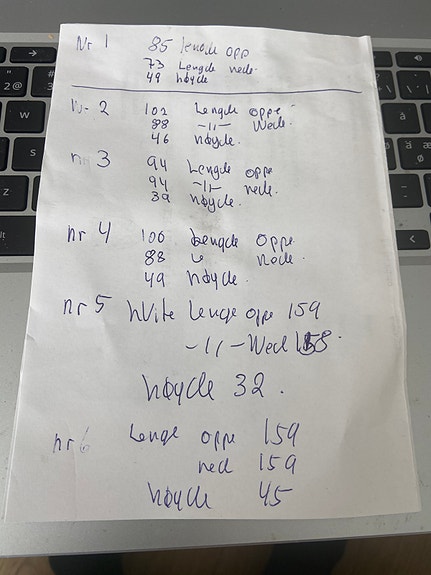 Nr 1 85 lengde opp
73 Lengde nede.
49 høyde
Nr 2 102 Lengde oppe
88 -11- Nede.
46 høyde.
nr 3 94 Lengde oppe
94 -11- nede.
39 høyde.
nr 4 100 Lengde oppe
88 nede.
49 høyde.
nr 5 hvite lenge oppe 159
-11- Ned 158.
høyde 32.
nr 6 Lenge oppe 159
ned 159
høyde 45